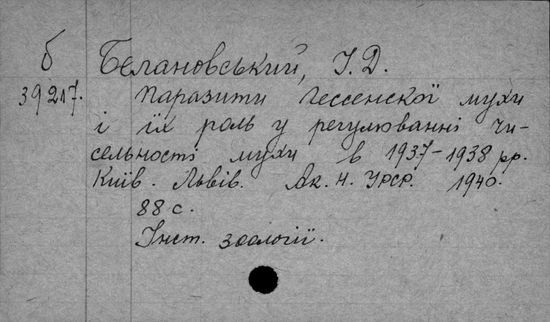 б Белановський, І. Д.
39217. Паразити гессенскої мухи
і їх роль у регулюванні чи-
сельності мухи в 1937-1938 рр.
Київ. Львів. Ак. Н. УРСР. 1940.
88 с.
Інст. зоології.